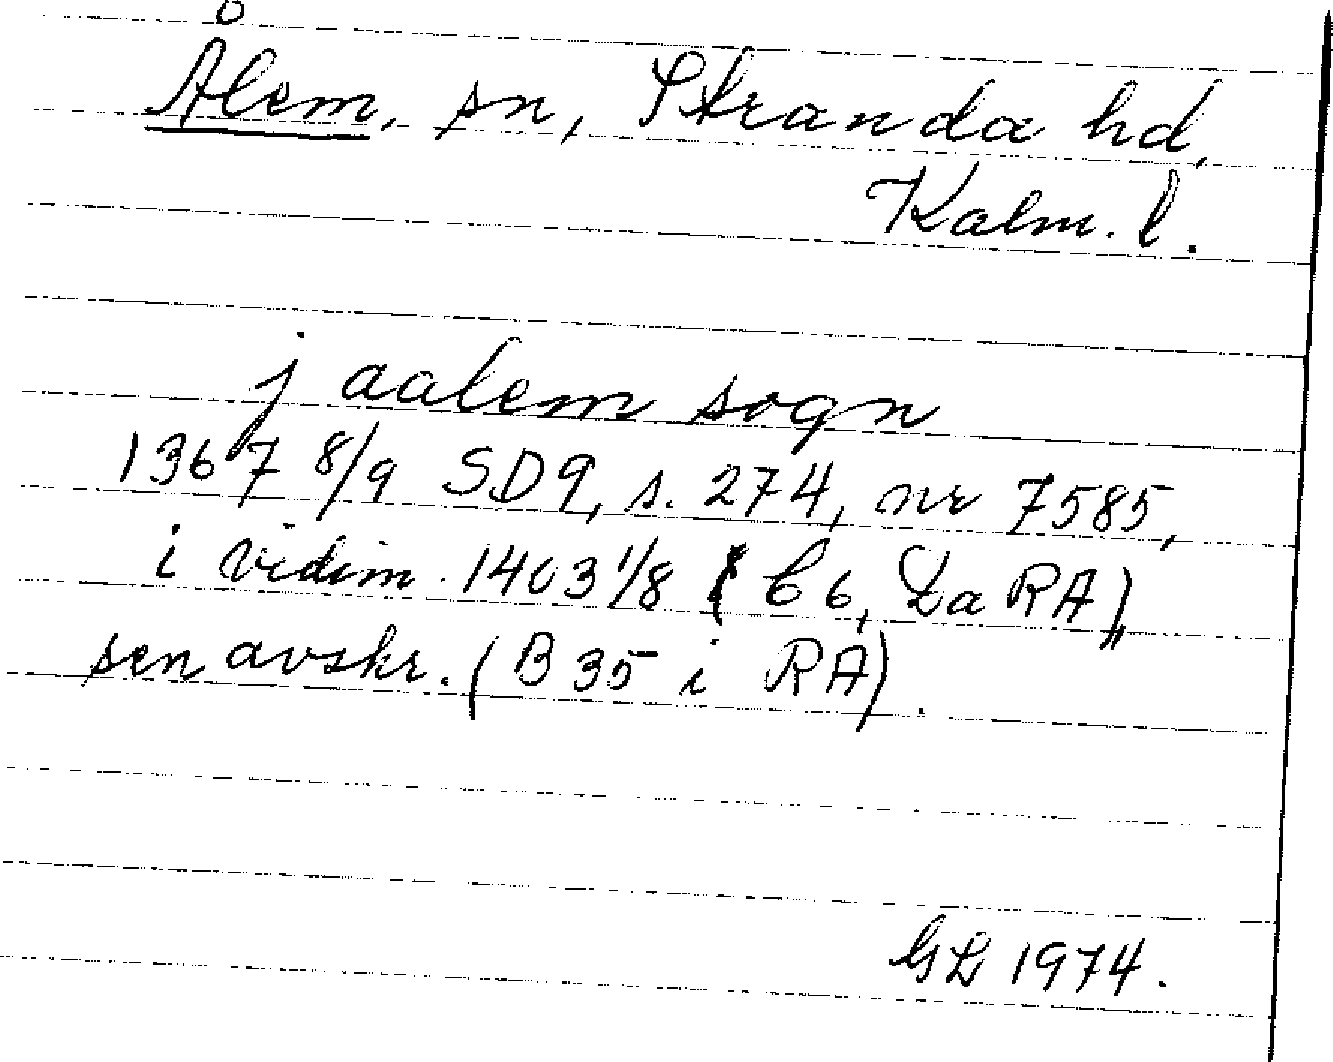 Ålem, sn, Stranda hd,
Kalm. l.
j aalem sogn
1367 8/9 SD9, s. 274, nr 7585,
i vidim. 1403 1/8 ( b6, Za RA),
sen avskr. (B 35 i RA).
GL 1974.